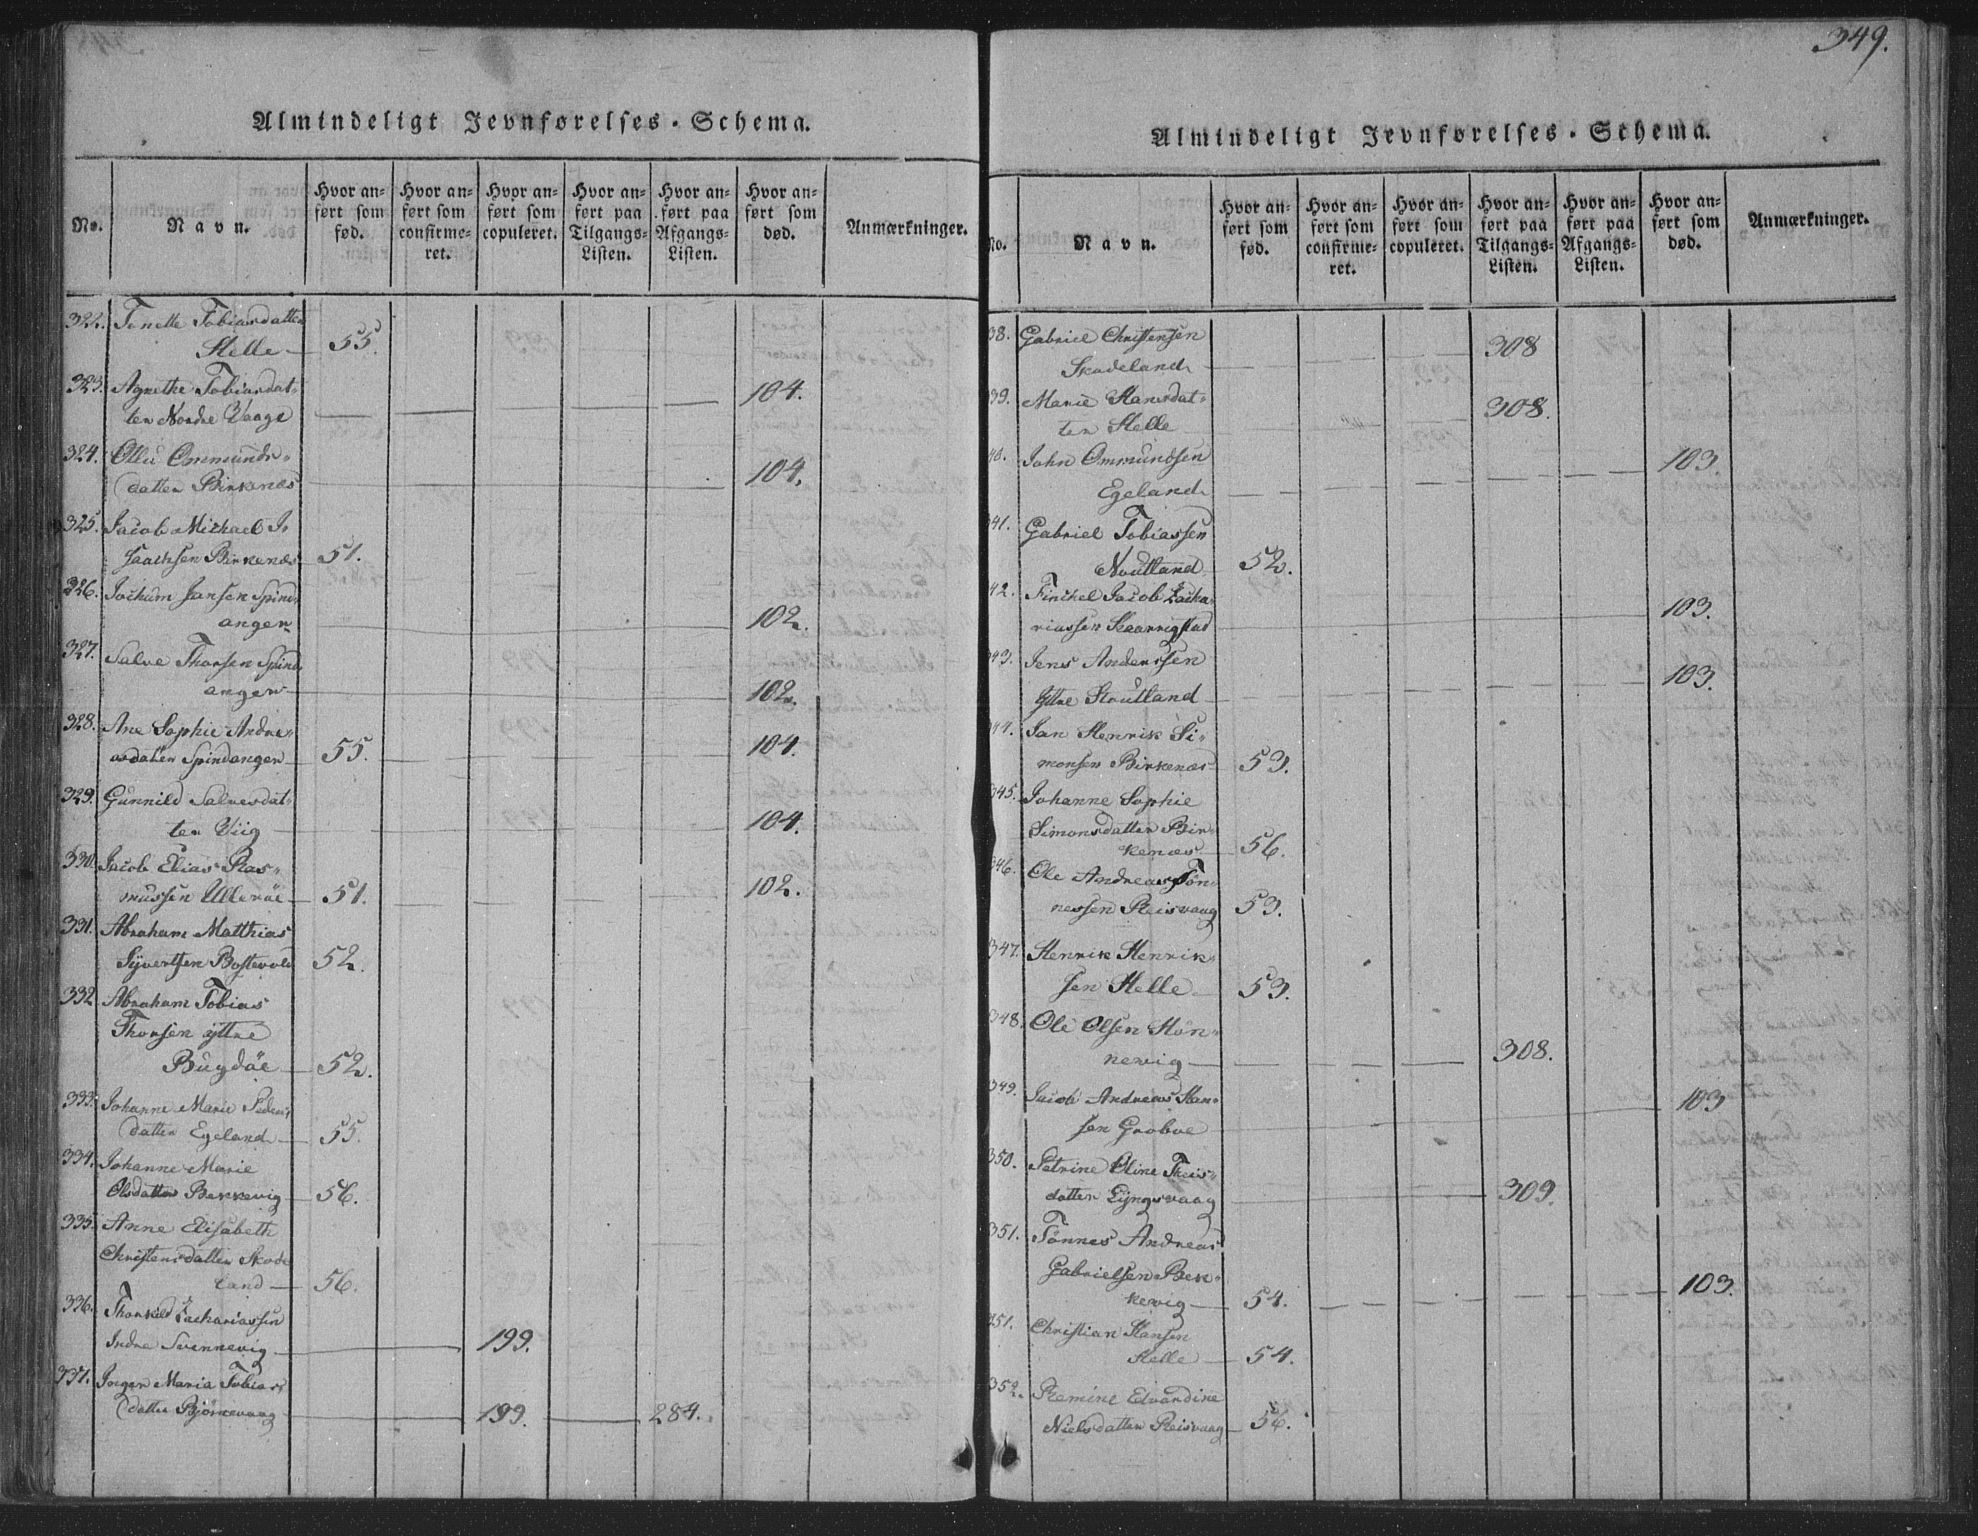 349.
Almindeligt Jevnførelses-Schema.
No. Navn. Hvor anført som fød. Hvor anført som confirmeret. Hvor anført som copuleret. Hvor anført paa Tilgangs-Listen. Hvor anført paa Afgangs-Listen. Hvor anført som død. Anmærkninger.
322. Tonette Tobiasdatter
Helle 55.
323. Agnethe Tobiasdat-
ten Nordre Vaage 104.
324. Olliv Ommunds-
datter Birkenæs 104.
325. Jacob Michael I-
saachsen Birkenæs 51.
326. Jochum Jansen Spind-
anger 102.
327. Salve Thorsen Spind-
anger 102.
328. Ane Sophie Andre-
asdatter Spindanger 55. 104.
329. Gunnild Salvesdat-
ter Viig 104.
330. Jacob Elias Ras-
mussen Ullerøe 51. 102.
331. Abraham Matthias
Syvertsen Bostevold 52.
332 Abraham Tobias
Thorsen ÿttre
Bugdøe 52.
333. Johanne Marie Peders-
datter Egeland 55.
334. Johanne Marie
Olsdatter Bekkevig 56.
335. Anne Elisabeth
Christensdatter Skode-
land 56.
336. Thorkild Zachariassen
Indre Svennevig 199.
337. Inger Maria Tobias-
datter Bjørnevaag 199. 284.
Almindeligt Jevnførelses-Schema.
No. Navn. Hvor anført som fød. Hvor anført som confirmeret. Hvor anført som copuleret. Hvor anført paa Tilgangs-Listen. Hvor anført paa Afgangs-Listen. Hvor anført som død. Anmærkninger.
38. Gabriel Christensen
Skodeland 308
39. Marie Hansdat-
ter Helle 308.
40. John Ommundsen
Egeland 103.
341. Gabriel Tobiassen
Noutland 52.
42. Jacob Zacha-
riassen 103.
343. Jens Anderssen
Yttre Stoutland 103.
344. Jan Henrik Si-
monsen Birkenæs 53.
345. Johanne Sophie
Simonsdatter Bir-
kenæs 56.
346. Ole Andreas Tøn-
nessen Reisvaag 53.
347. Henrik Henrik-
sen Helle 53.
348. Ole Olsen Høn-
nevig 308.
349. Jacob Andreas Han-
sen Grobve 103
350. Petrine Oline Theis-
datter Lÿngsvaag 309.
351. Tønnes Andreas
Gabrielsen Bek-
kevig 54. 103.
251. Christian Hansen
Helle 54.
352. Remine Edvardine
Nielsdatter Reisvaag 56.